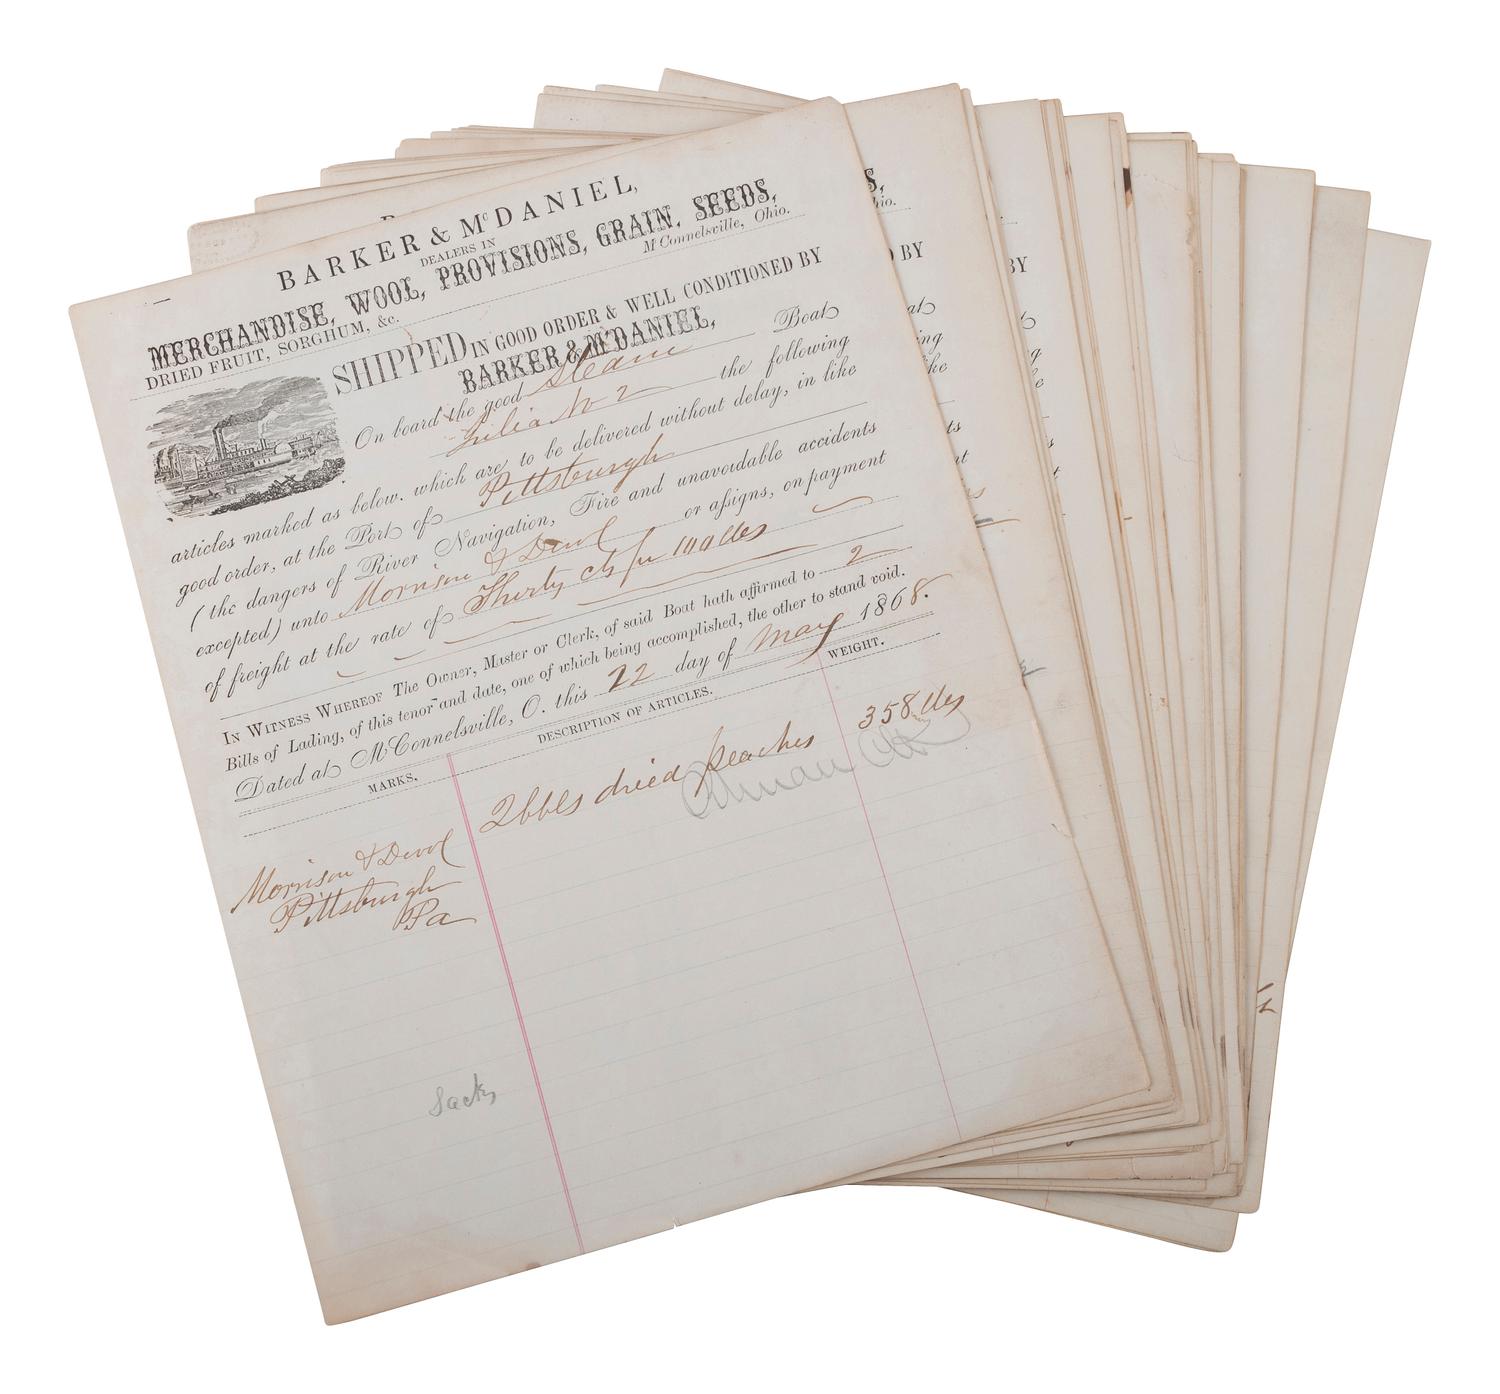 BARKER & McDANIEL,
DEALERS IN
MERCHANDISE, WOOL, PROVISIONS, GRAIN, SEEDS,
DRIED FRUIT, SORGHUM, &c.
McConnelsville, Ohio.
SHIPPED IN GOOD ORDER & WELL CONDITIONED BY
BARKER & McDANIEL,
On board the good Steam Boat
Julia No 2 the following
articles marked as below. which are to be delivered without delay, in like
good order, at the Port of Pittsburgh
(the dangers of River Navigation, Fire and unavoidable accidents
excepted) unto Morrison & Devol or assigns, on payment
of freight at the rate of Thirty cts per 100 lbs
IN WITNESS WHEREOF The Owner, Master or Clerk, of said Boat hath affirmed to 2
Bills of Lading, of this tenor and date, one of which being accomplished, the other to stand void.
Dated at McConnelsville, O. this 22 day of May 1868.
MARKS. DESCRIPTION OF ARTICLES. WEIGHT.
2 bbls dried peaches 358 lbs
Morrison & Devol
Pittsburgh
Pa
Sacks
S,
hio.
D BY
at
ing
ke
ts
nt
BY